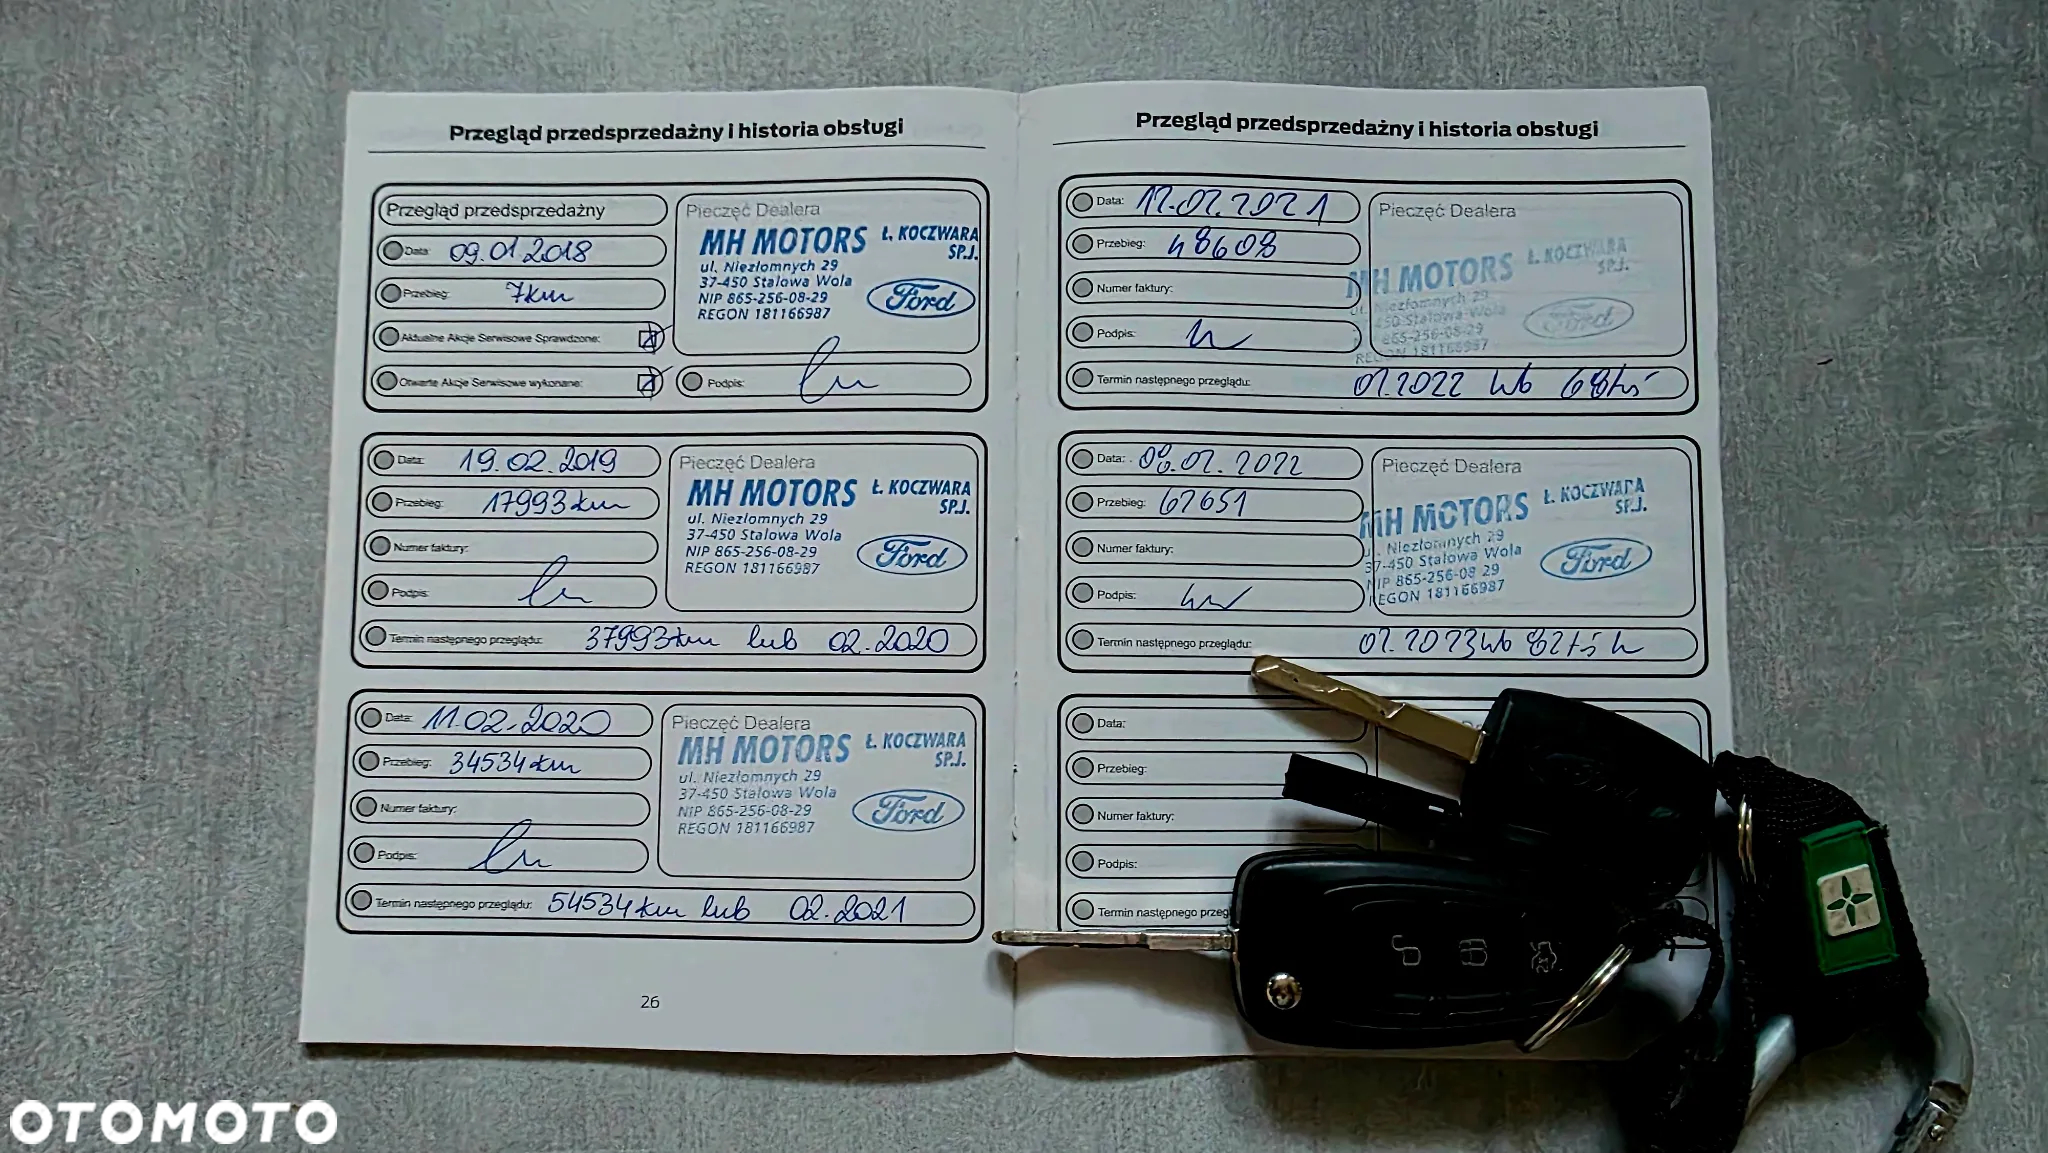 Przegląd przedsprzedażny i historia obsługi
Przegląd przedsprzedażny
Data: 09.01.2018
Przebieg: 7km
Aktualne Akcje Serwisowe Sprawdzone:
Otwarte Akcje Serwisowe wykonane:
Pieczęć Dealera
MH MOTORS Ł. KOCZWARA
SP.J.
ul. Niezłomnych 29
37-450 Stalowa Wola
NIP 865-256-08-29
REGON 181166987
Ford
Podpis:
Data: 19.02.2019
Przebieg: 17993km
Numer faktury:
Podpis:
Termin następnego przeglądu: 37993km lub 02.2020
Pieczęć Dealera
MH MOTORS Ł. KOCZWARA
SP.J.
ul. Niezłomnych 29
37-450 Stalowa Wola
NIP 865-256-08-29
REGON 181166987
Ford
Data: 11.02.2020
Przebieg: 34534km
Numer faktury:
Podpis:
Termin następnego przeglądu: 54534km lub 02.2021
Pieczęć Dealera
MH MOTORS Ł. KOCZWARA
SP.J.
ul. Niezłomnych 29
37-450 Stalowa Wola
NIP 865-256-08-29
REGON 181166987
Ford
26
Przegląd przedsprzedażny i historia obsługi
Data: 12.02.2021
Przebieg: 48608
Numer faktury:
Podpis:
Termin następnego przeglądu: 02.2022 lub 68tyś
Pieczęć Dealera
MH MOTORS Ł. KOCZWARA
SP.J.
ul. Niezłomnych 29
450 Stalowa Wola
865-256-08-29
REGON 181166987
Ford
Data: 08.02.2022
Przebieg: 62651
Numer faktury:
Podpis:
Termin następnego przeglądu: 02.2023 lub 82tyś
Pieczęć Dealera
MH MOTORS Ł. KOCZWARA
SP.J.
ul. Niezłomnych 29
37-450 Stalowa Wola
NIP 865-256-08 29
REGON 181166987
Ford
Data:
Przebieg:
Numer faktury:
Podpis:
Termin następnego
OTOMOTO